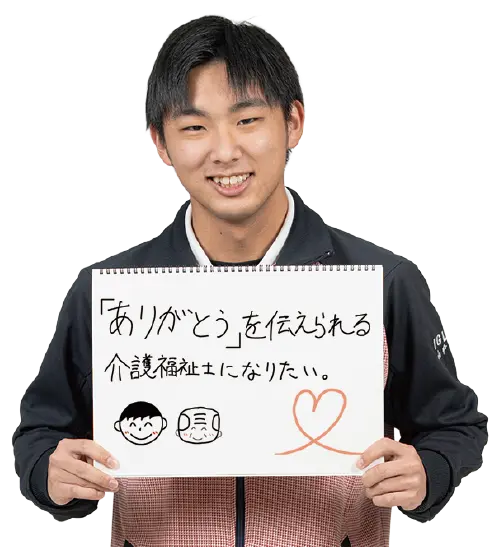 「ありがとう」を伝えられる
介護福祉士になりたい。